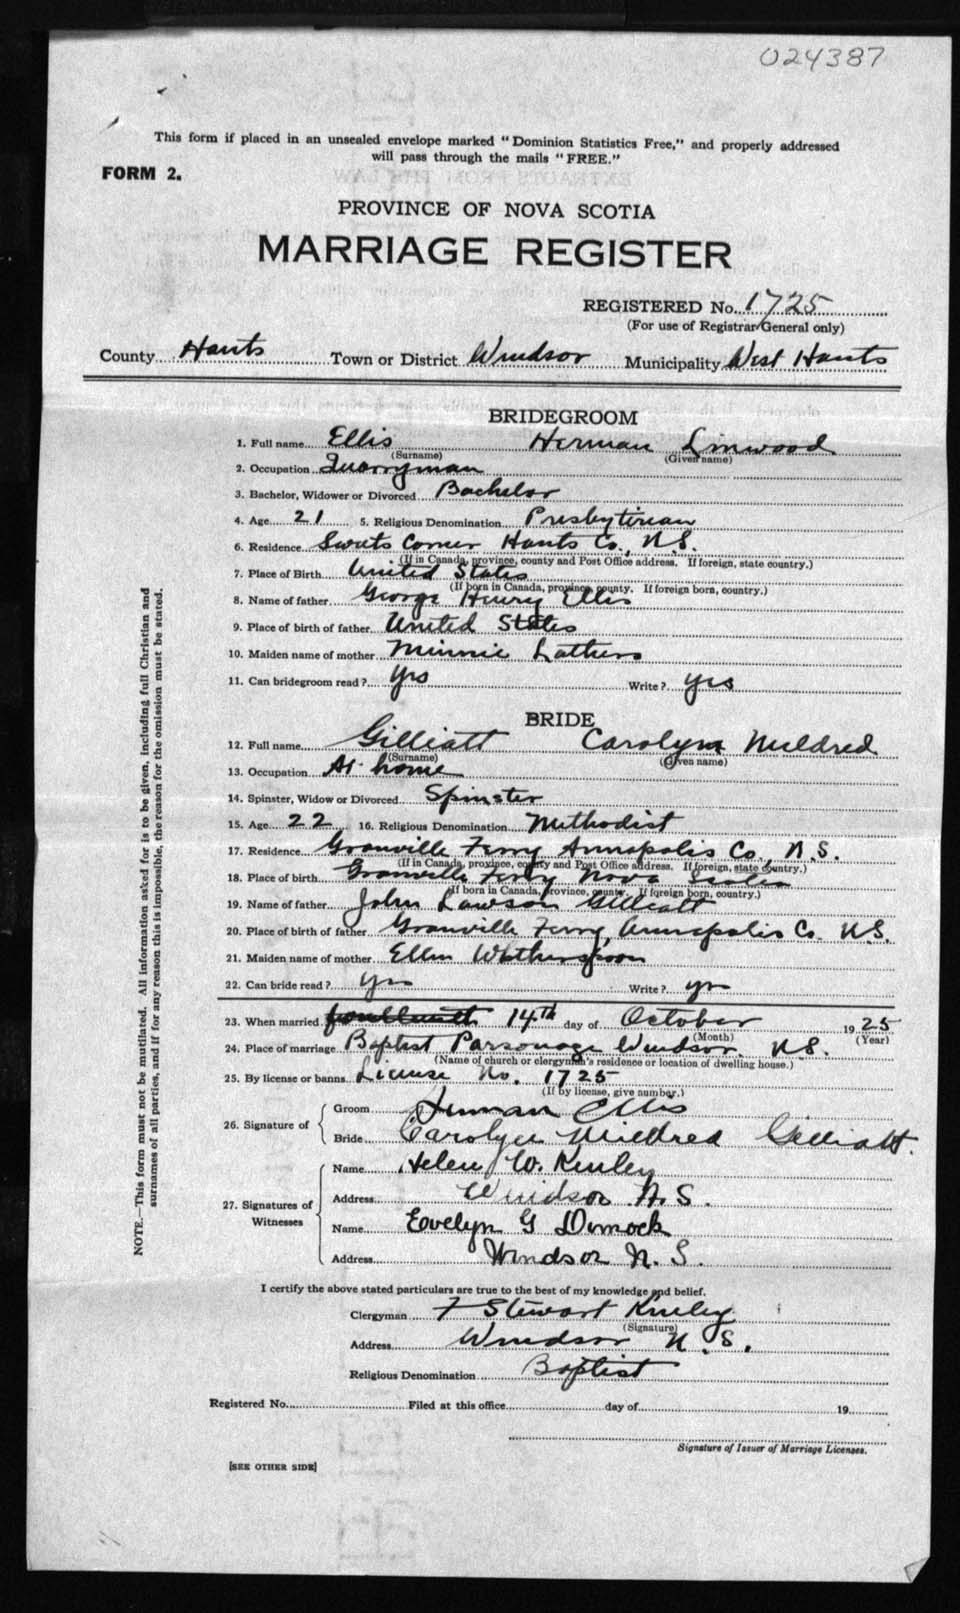 024387
This form if placed in an unsealed envelope marked "Dominion Statistics Free," and properly addressed
will pass through the mails "FREE."
FORM 2.
PROVINCE OF NOVA SCOTIA
MARRIAGE REGISTER
REGISTERED No. 1725
(For use of Registrar General only)
County Hants Town or District Windsor Municipality West Hants
BRIDEGROOM
1. Full name Ellis Herman Linwood
(Surname) (Given name)
2. Occupation Quarryman
3. Bachelor, Widower or Divorced Bachelor
4. Age 21 5. Religious Denomination Presbyterian
6. Residence Sweets Corner Hants Co., N.S.
(If in Canada, province, county and Post Office address. If foreign, state country.)
7. Place of Birth United States
(If born in Canada, province, county. If foreign born, country.)
8. Name of father George Henry Ellis
9. Place of birth of father United States
10. Maiden name of mother Minnie Lathers
11. Can bridegroom read? yes Write? yes
BRIDE
12. Full name Gilliatt Carolyn Mildred
(Surname) (Given name)
13. Occupation At home
14. Spinster, Widow or Divorced Spinster
15. Age 22 16. Religious Denomination Methodist
17. Residence Granville Ferry Annapolis Co., N.S.
(If in Canada, province, county and Post Office address. If foreign, state country.)
18. Place of birth Granville Ferry Nova Scotia
(If born in Canada, province, county. If foreign born, country.)
19. Name of father John Lawson Gilliatt
20. Place of birth of father Granville Ferry, Annapolis Co. N.S.
21. Maiden name of mother Ellen Wotherspoon
22. Can bride read? yes Write? yes
23. When married 14th day of October 1925
(Month) (Year)
24. Place of marriage Baptist Parsonage Windsor. N.S.
(Name of church or clergyman's residence or location of dwelling house.)
25. By license or banns License No. 1725
(If by license, give number.)
26. Signature of
Groom Herman Ellis
Bride Carolyn Mildred Gilliatt.
27. Signatures of Witnesses
Name Helen W. Kinley
Address Windsor N.S.
Name Evelyn G Dimock
Address Windsor N.S.
I certify the above stated particulars are true to the best of my knowledge and belief.
Clergyman F Stewart Kinley
(Signature)
Address Windsor N.S.
Religious Denomination Baptist
Registered No. Filed at this office day of 19
Signature of Issuer of Marriage Licenses.
[SEE OTHER SIDE]
NOTE.—This form must not be mutilated. All information asked for is to be given, including full Christian and
surnames of all parties, and if for any reason this is impossible, the reason for the omission must be stated.